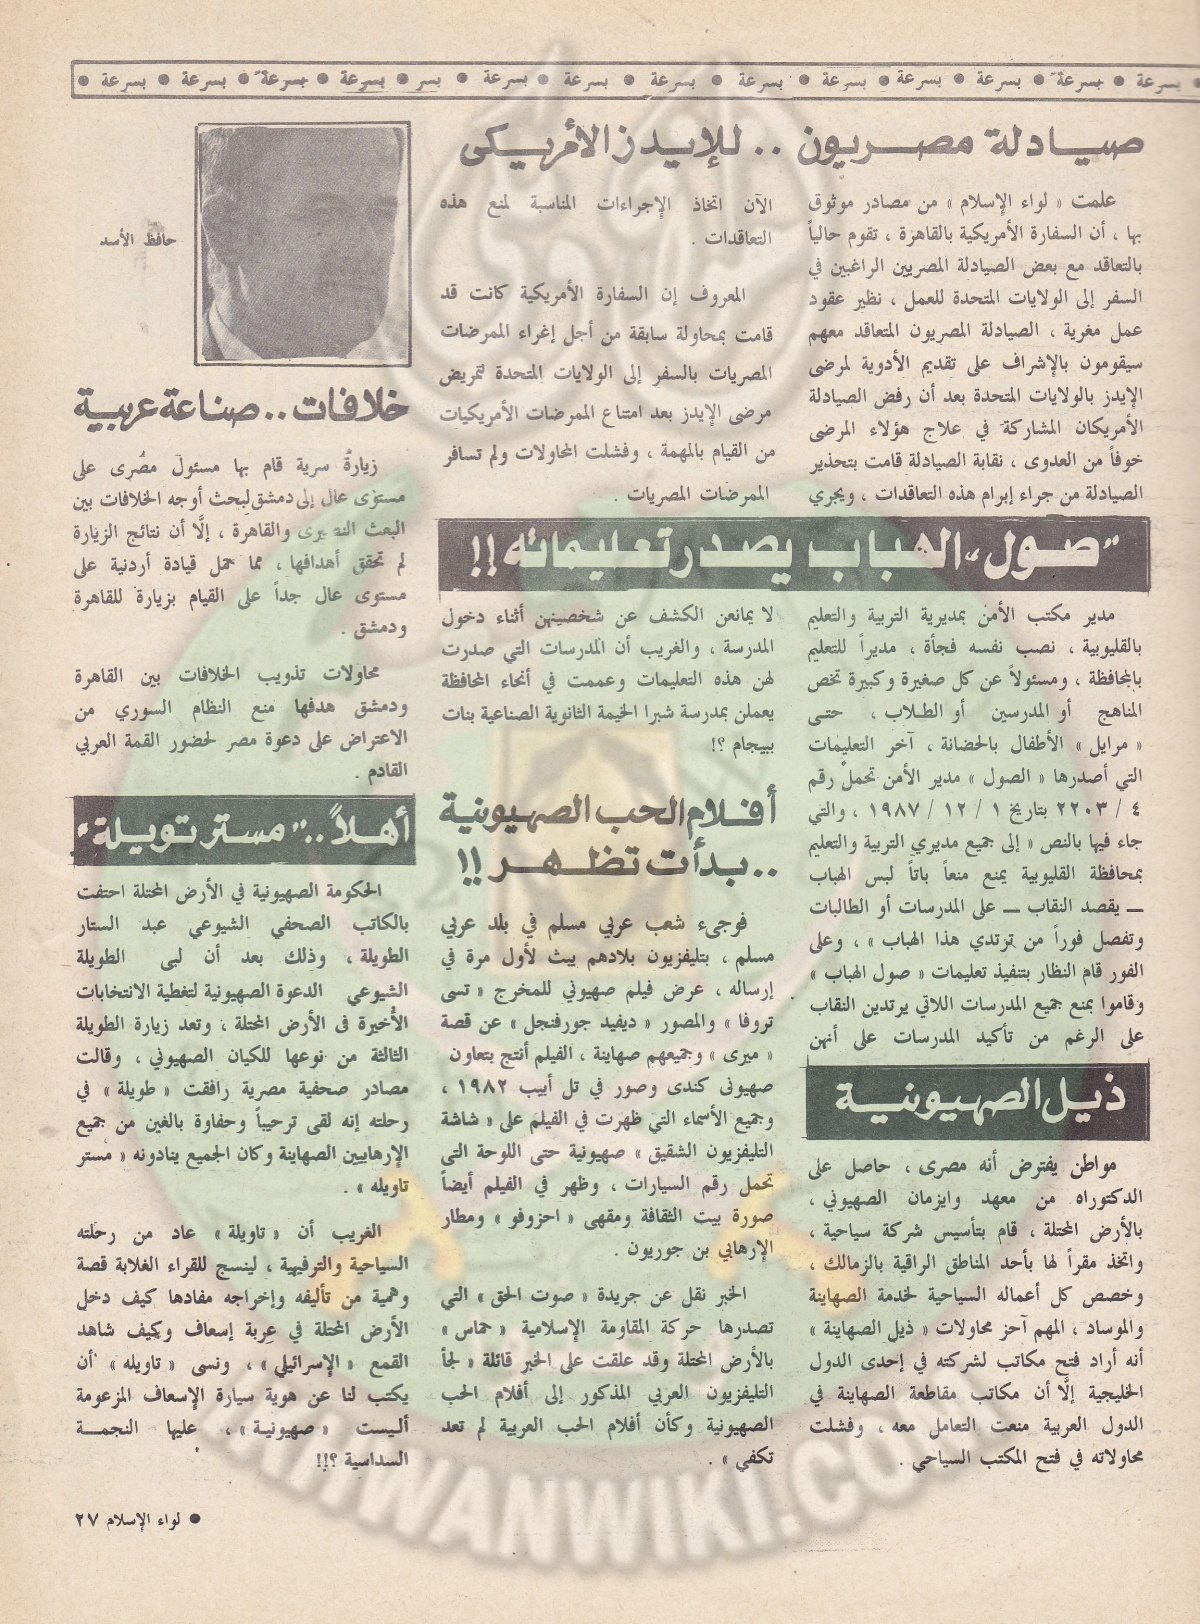 بسرعة ● بسرعة ● بسرعة ● بسرعة ● بسرعة ● بسرعة ● بسرعة ● بسرعة ● بسرعة ● بسرعة ● بسر ● بسرعة ● بسرعة ● بسرعة ● بسرعة ● بسرعة ●
صيادلة مصريون .. للإيدز الأمريكى
علمت « لواء الإسلام » من مصادر موثوق
بها ، أن السفارة الأمريكية بالقاهرة ، تقوم حالياً
بالتعاقد مع بعض الصيادلة المصريين الراغبين في
السفر إلى الولايات المتحدة للعمل ، نظير عقود
عمل مغرية ، الصيادلة المصريون المتعاقد معهم
سيقومون بالإشراف على تقديم الأدوية لمرضى
الإيدز بالولايات المتحدة بعد أن رفض الصيادلة
الأمريكان المشاركة في علاج هؤلاء المرضى
خوفاً من العدوى ، نقابة الصيادلة قامت بتحذير
الصيادلة من جراء إبرام هذه التعاقدات ، ويجري
الآن اتخاذ الإجراءات المناسبة لمنع هذه
التعاقدات .
المعروف إن السفارة الأمريكية كانت قد
قامت بمحاولة سابقة من أجل إغراء الممرضات
المصريات بالسفر إلى الولايات المتحدة لتمريض
مرضى الإيدز بعد امتناع الممرضات الأمريكيات
من القيام بالمهمة ، وفشلت المحاولات ولم تسافر
الممرضات المصريات .
"صول" الهباب يصدر تعليماته !!
مدير مكتب الأمن بمديرية التربية والتعليم
بالقليوبية ، نصب نفسه فجأة ، مديراً للتعليم
بالمحافظة ، ومسئولاً عن كل صغيرة وكبيرة تخص
المناهج أو المدرسين أو الطلاب ، حتى
« مرايل » الأطفال بالحضانة ، آخر التعليمات
التي أصدرها « الصول » مدير الأمن تحمل رقم
٤ / ٢٢٠٣ بتاريخ ١ / ١٢ / ١٩٨٧ ، والتي
جاء فيها بالنص « إلى جميع مديري التربية والتعليم
بمحافظة القليوبية يمنع منعاً باتاً لبس الهباب
ـ يقصد النقاب ـ على المدرسات أو الطالبات
وتفصل فوراً من ترتدي هذا الهباب » ، وعلى
الفور قام النظار بتنفيذ تعليمات « صول الهباب »
وقاموا بمنع جميع المدرسات اللاتي يرتدين النقاب
على الرغم من تأكيد المدرسات على أنهن
لا يمانعن الكشف عن شخصيتهن أثناء دخول
المدرسة ، والغريب أن المدرسات التي صدرت
لهن هذه التعليمات وعممت في أنحاء المحافظة
يعملن بمدرسة شبرا الخيمة الثانوية الصناعية بنات
ببيجام ؟!
ذيل الصهيونية
مواطن يفترض أنه مصرى ، حاصل على
الدكتوراه من معهد وايزمان الصهيوني ،
بالأرض المحتلة ، قام بتأسيس شركة سياحية ،
واتخذ مقراً لها بأحد المناطق الراقية بالزمالك ،
وخصص كل أعماله السياحية لخدمة الصهاينة
والموساد ، المهم آخر محاولات « ذيل الصهاينة »
أنه أراد فتح مكاتب لشركته في إحدى الدول
الخليجية إلّا أن مكاتب مقاطعة الصهاينة في
الدول العربية منعت التعامل معه ، وفشلت
محاولاته في فتح المكتب السياحي .
أفلام الحب الصهيونية
.. بدأت تظهر !!
فوجىء شعب عربي مسلم في بلد عربي
مسلم ، بتليفزيون بلادهم يبث لأول مرة في
إرساله ، عرض فيلم صهيوني للمخرج « تسى
تروفا » والمصور « ديفيد جورفنجل » عن قصة
« ميرى » وجميعهم صهاينة ، الفيلم أنتج بتعاون
صهيونى كندى وصور في تل أبيب ١٩٨٢ ،
وجميع الأسماء التي ظهرت في الفيلم على « شاشة
التليفزيون الشقيق » صهيونية حتى اللوحة التى
تحمل رقم السيارات ، وظهر في الفيلم أيضاً
صورة بيت الثقافة ومقهى « احزوفو » ومطار
الإرهابي بن جوريون .
الخبر نقل عن جريدة « صوت الحق » التي
تصدرها حركة المقاومة الإسلامية « حماس »
بالأرض المحتلة وقد علقت على الخبر قائلة « لجأ
التليفزيون العربي المذكور إلى أفلام الحب
الصهيونية وكأن أفلام الحب العربية لم تعد
تكفي » .
حافظ الأسد
خلافات .. صناعة عربية
زيارة سرية قام بها مسئول مصرى على
مستوى عال إلى دمشق لبحث أوجه الخلافات بين
البعث النصيرى والقاهرة ، إلّا أن نتائج الزيارة
لم تحقق أهدافها ، مما حمل قيادة أردنية على
مستوى عال جداً على القيام بزيارة للقاهرة
ودمشق .
محاولات تذويب الخلافات بين القاهرة
ودمشق هدفها منع النظام السوري من
الاعتراض على دعوة مصر لحضور القمة العربي
القادم .
أهلاً .. "مستر تويلة"
الحكومة الصهيونية في الأرض المحتلة احتفت
بالكاتب الصحفي الشيوعي عبد الستار
الطويلة ، وذلك بعد أن لبى الطويلة
الشيوعي الدعوة الصهيونية لتغطية الانتخابات
الأخيرة فى الأرض المحتلة ، وتعد زيارة الطويلة
الثالثة من نوعها للكيان الصهيوني ، وقالت
مصادر صحفية مصرية رافقت « طويلة » في
رحلته إنه لقى ترحيباً وحفاوة بالغين من جميع
الإرهابيين الصهاينة وكان الجميع ينادونه « مستر
تاويله » .
الغريب أن « تاويلة » عاد من رحلته
السياحية والترفيهية ، لينسج للقراء الغلابة قصة
وهمية من تأليفه وإخراجه مفادها كيف دخل
الأرض المحتلة في عربة إسعاف وكيف شاهد
القمع « الإسرائيلي » ، ونسى « تاويله » أن
يكتب لنا عن هوية سيارة الإسعاف المزعومة
أليست « صهيونية » ، عليها النجمة
السداسية ؟!!
● لواء الإسلام ٢٧
WWW.IKHWANWIKI.COM